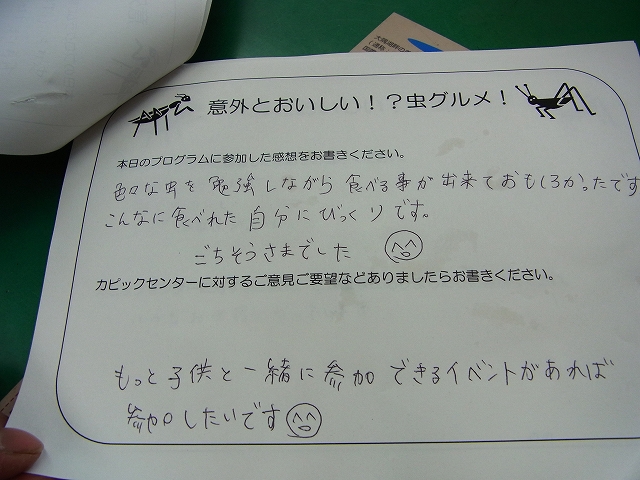 意外とおいしい！？虫グルメ！
本日のプログラムに参加した感想をお書きください。
色々な虫を勉強しながら食べる事が出来ておもしろかったです
こんなに食べれた自分にびっくりです。
ごちそうさまでした
カピックセンターに対するご意見ご要望などありましたらお書きください。
もっと子供と一緒に参加できるイベントがあれば
参加したいです